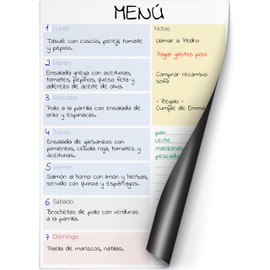 MENÚ
1 Lunes
Tabulé con cuscús, perejil, tomate
y pepino.
2 Martes
Ensalada griega con aceitunas,
tomates, pepinos, queso feta y
aderezo de aceite de oliva.
3 Miércoles
Pollo a la parrilla con ensalada de
orzo y espinacas.
4 Jueves
Ensalada de garbanzos con
pimientos, cebolla roja, tomates y
aceitunas.
5 Viernes
Salmón al horno con limón y hierbas,
servido con quinoa y espárragos.
6 Sábado
Brochetas de pollo con verduras
a la parrilla.
7 Domingo
Paella de mariscos, natillas.
Notas
Llamar a Pedro
Pagar gastos piso
Comprar recambio
sofá
- Regalo -
Cumple de Emma
pan
leche
manzanas
pescado